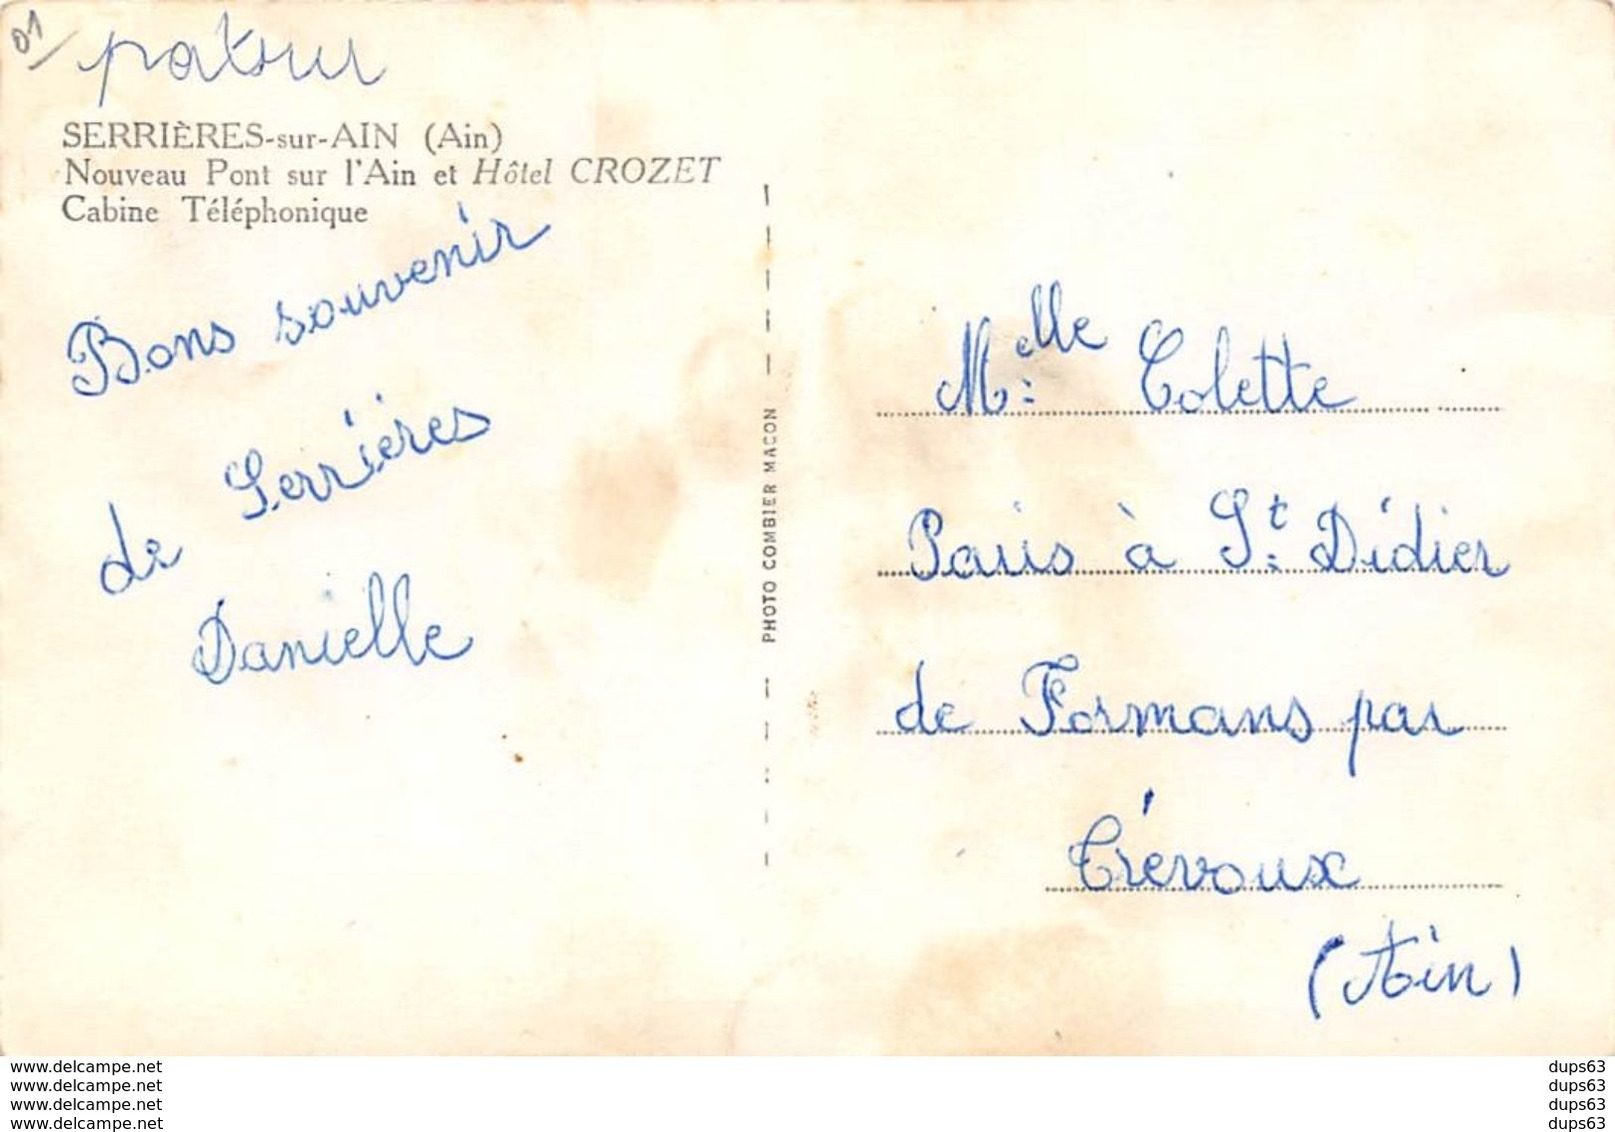 01
patour
SERRIÈRES-sur-AIN (Ain)
Nouveau Pont sur l'Ain et Hôtel CROZET
Cabine Téléphonique
Bons souvenir
de Serrières
Danielle
PHOTO COMBIER MACON
Melle Colette
Paris à St Didier
de Formans par
Trévoux
(Ain)
www.delcampe.net
www.delcampe.net
www.delcampe.net
www.delcampe.net
dups63
dups63
dups63
dups63